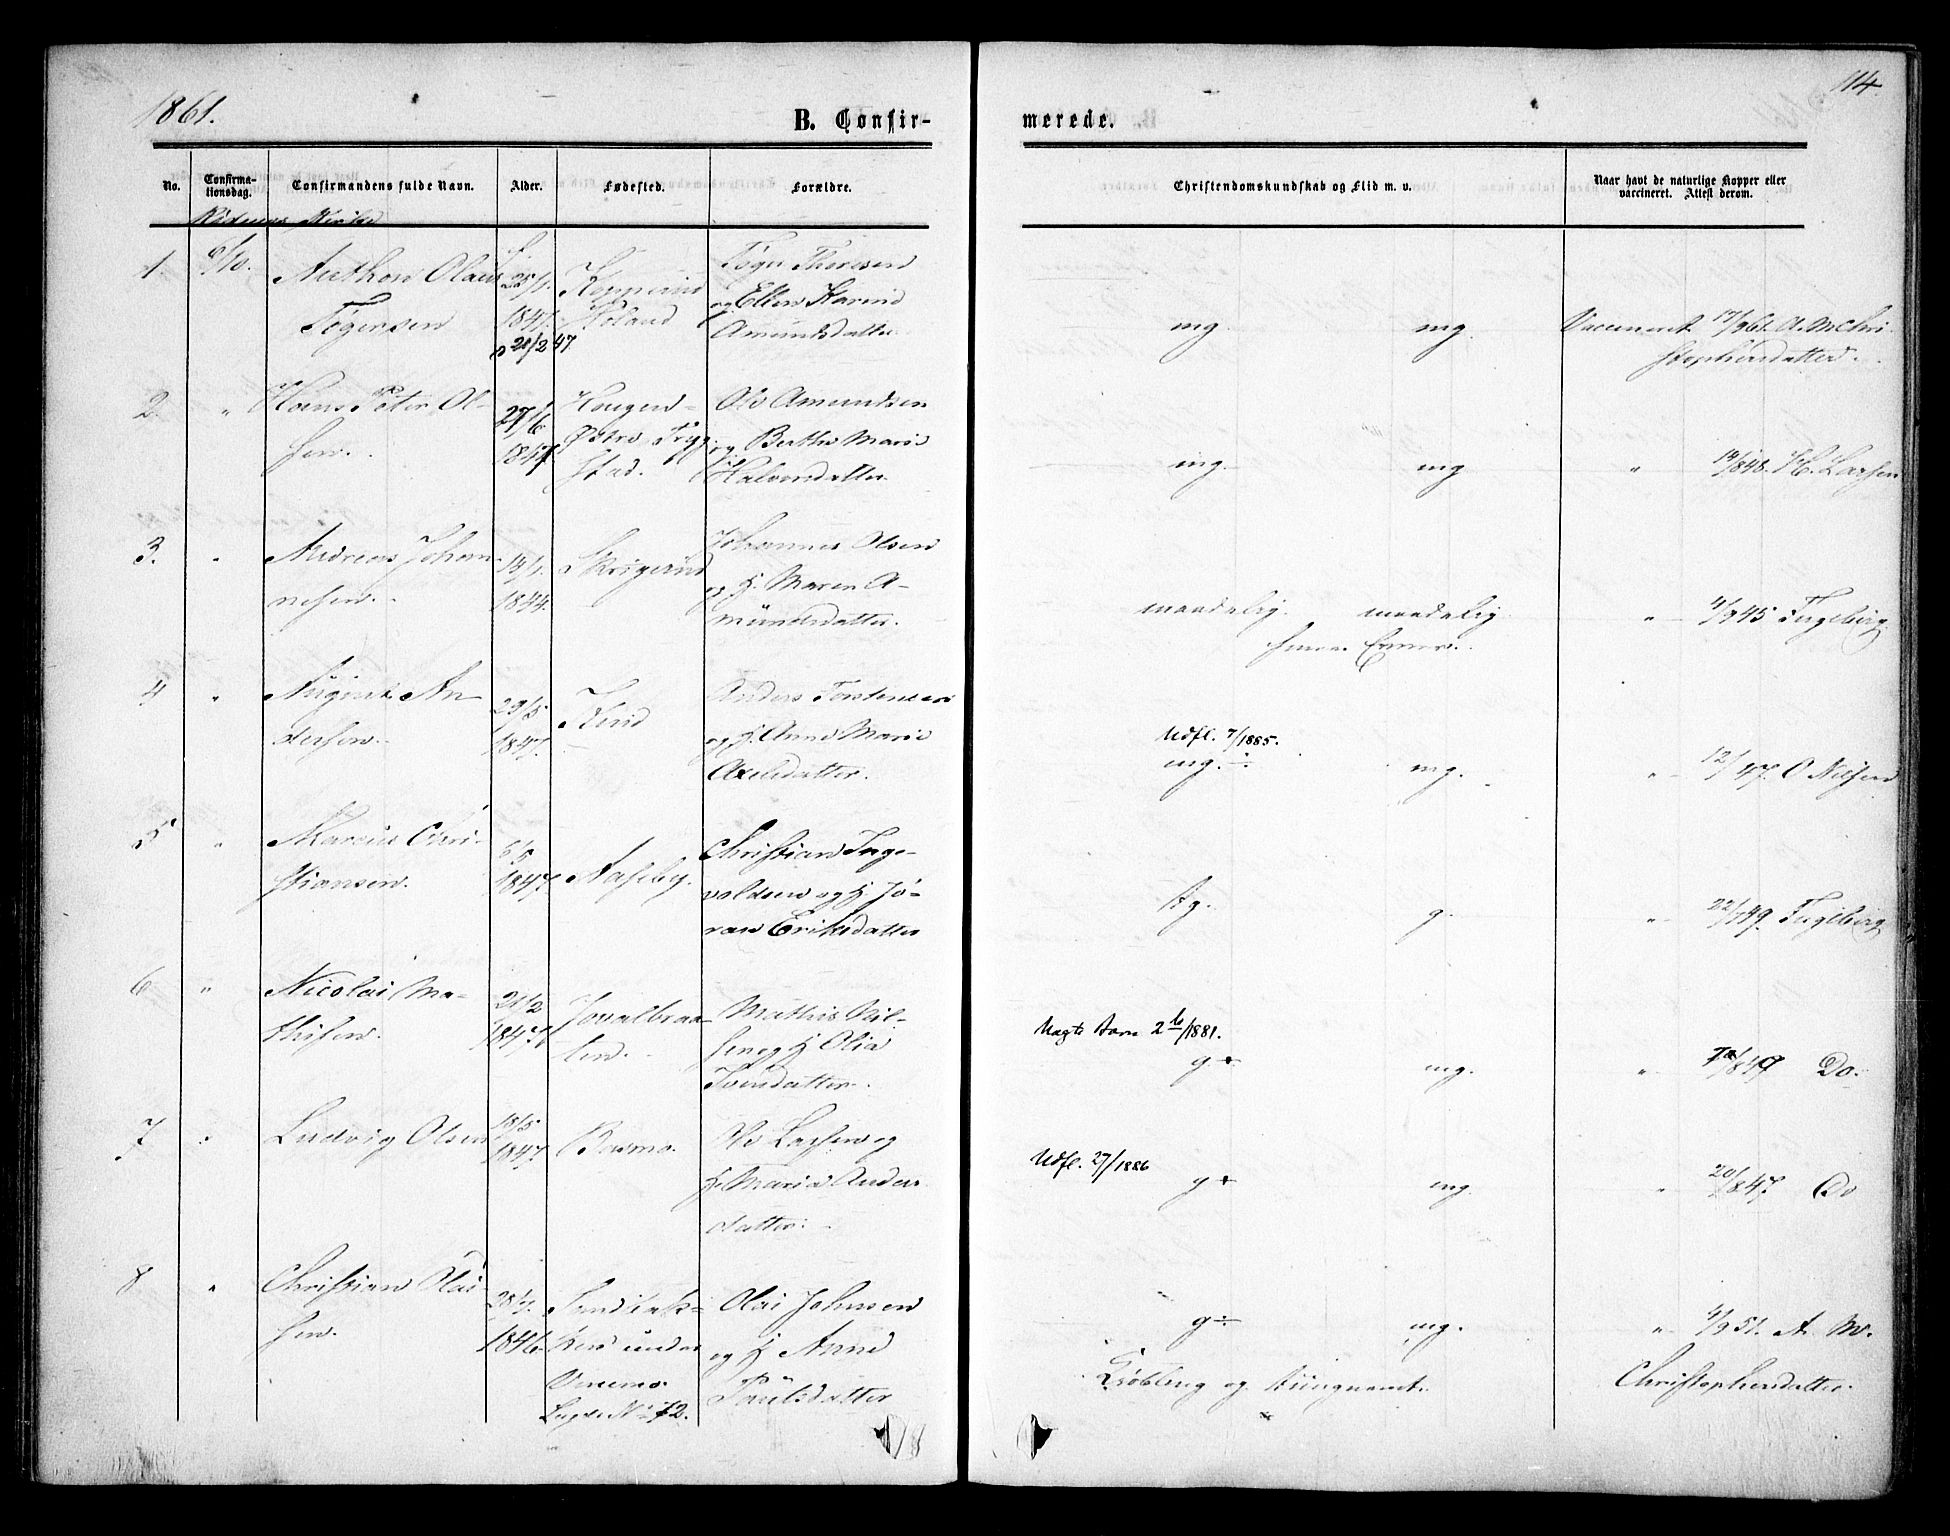 1861.
114
B. Confir-
merede.
No.
Confirma-
tionsdag.
Confirmandens fulde Navn.
Alder.
Fødested.
Forældre.
Christendomskundskab og Flid m. v.
Naar havt de naturlige Kopper eller
vaccineret. Attest derom.
Rødenes Kirke
1. 6/10. Anthon Olaus
Tøgersen
f. 25/1.
1847.
d 20/2 47
Høland
Tøger Thoresen
og Ellen Karine
Amundsdatter
mg mg. Vaccineret 17/9 61. A. M Chri-
stophersdatter.
2. " Hans Peter Ol-
sen.
27/6
1847.
Haugen
Østre Trygg-
stad.
Ole Amundsen
og Berthe Marie
Halvorsdatter
mg. mg " 19/8 48. H. Larsen
3. " Andreas Johan-
nesen.
14/1.
1844.
Johannes Olsen
og H. Maren A-
mundsdatter.
maadelig. maadelig
smaa Evner.
" 4/9 45 Fugleberg.
4 " August An-
dersen.
29/5
1847.
Anders Torstensen
og H. Anne Marie
Axelsdatter.
Udfl. 7/1885.
mg. ÷. mg. " 12/ 47. O Nilsen
5 " Marcus Chri-
stiansen.
5/5
1847.
Aaseby.
Christian Inge-
valdsen og H Jø-
ran Eriksdatter
g. g. " 22/7 49. Fugleberg
6 " Nicolai Ma-
thisen.
21/2
1847.
Jovalbraa-
ten.
Mathis Nil-
sen og H Olia
Iversdatter.
2 /1881.
g + mg. " /8 49 Do.
7 " Ludvig Olsen
18/5
1847.
Basmo.
Ole Larsen og
H. Maria Anders
datter.
Udfl. 27/1886
g + mg. " 20/8 47 Do
8 " Christian Olai-
sen.
28/7.
1846.
under
Venemo
Lægds No 72.
Olai Johnsen
og H Anne
Paulsdatter
g ÷ mg. " 4/9 51. A. M.
Christophersdatter.
og